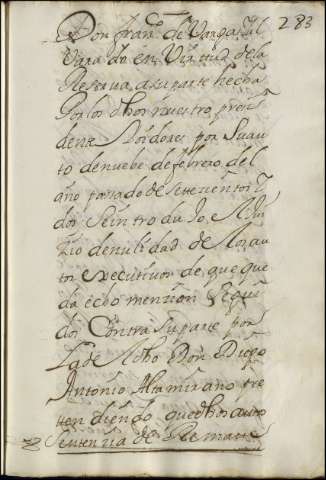 283
Don Franco de Vargas el
Vara do en Virtud de la
Reserva, a su parte hecha
Por los dhos nuestro presi
dente Y oidores por su au
to de nuebe de febrero del
año passado de setecientos Y
dos Se introdu Jo, el Jui
zio de nulidad de los au
tos executivos de, que que
da echo mension Segui
dos Contra Su parte por
La de el dho Don Diego
Antonio Altamirano pre
ten diendo que dhos autos
Sentenzia de Remate